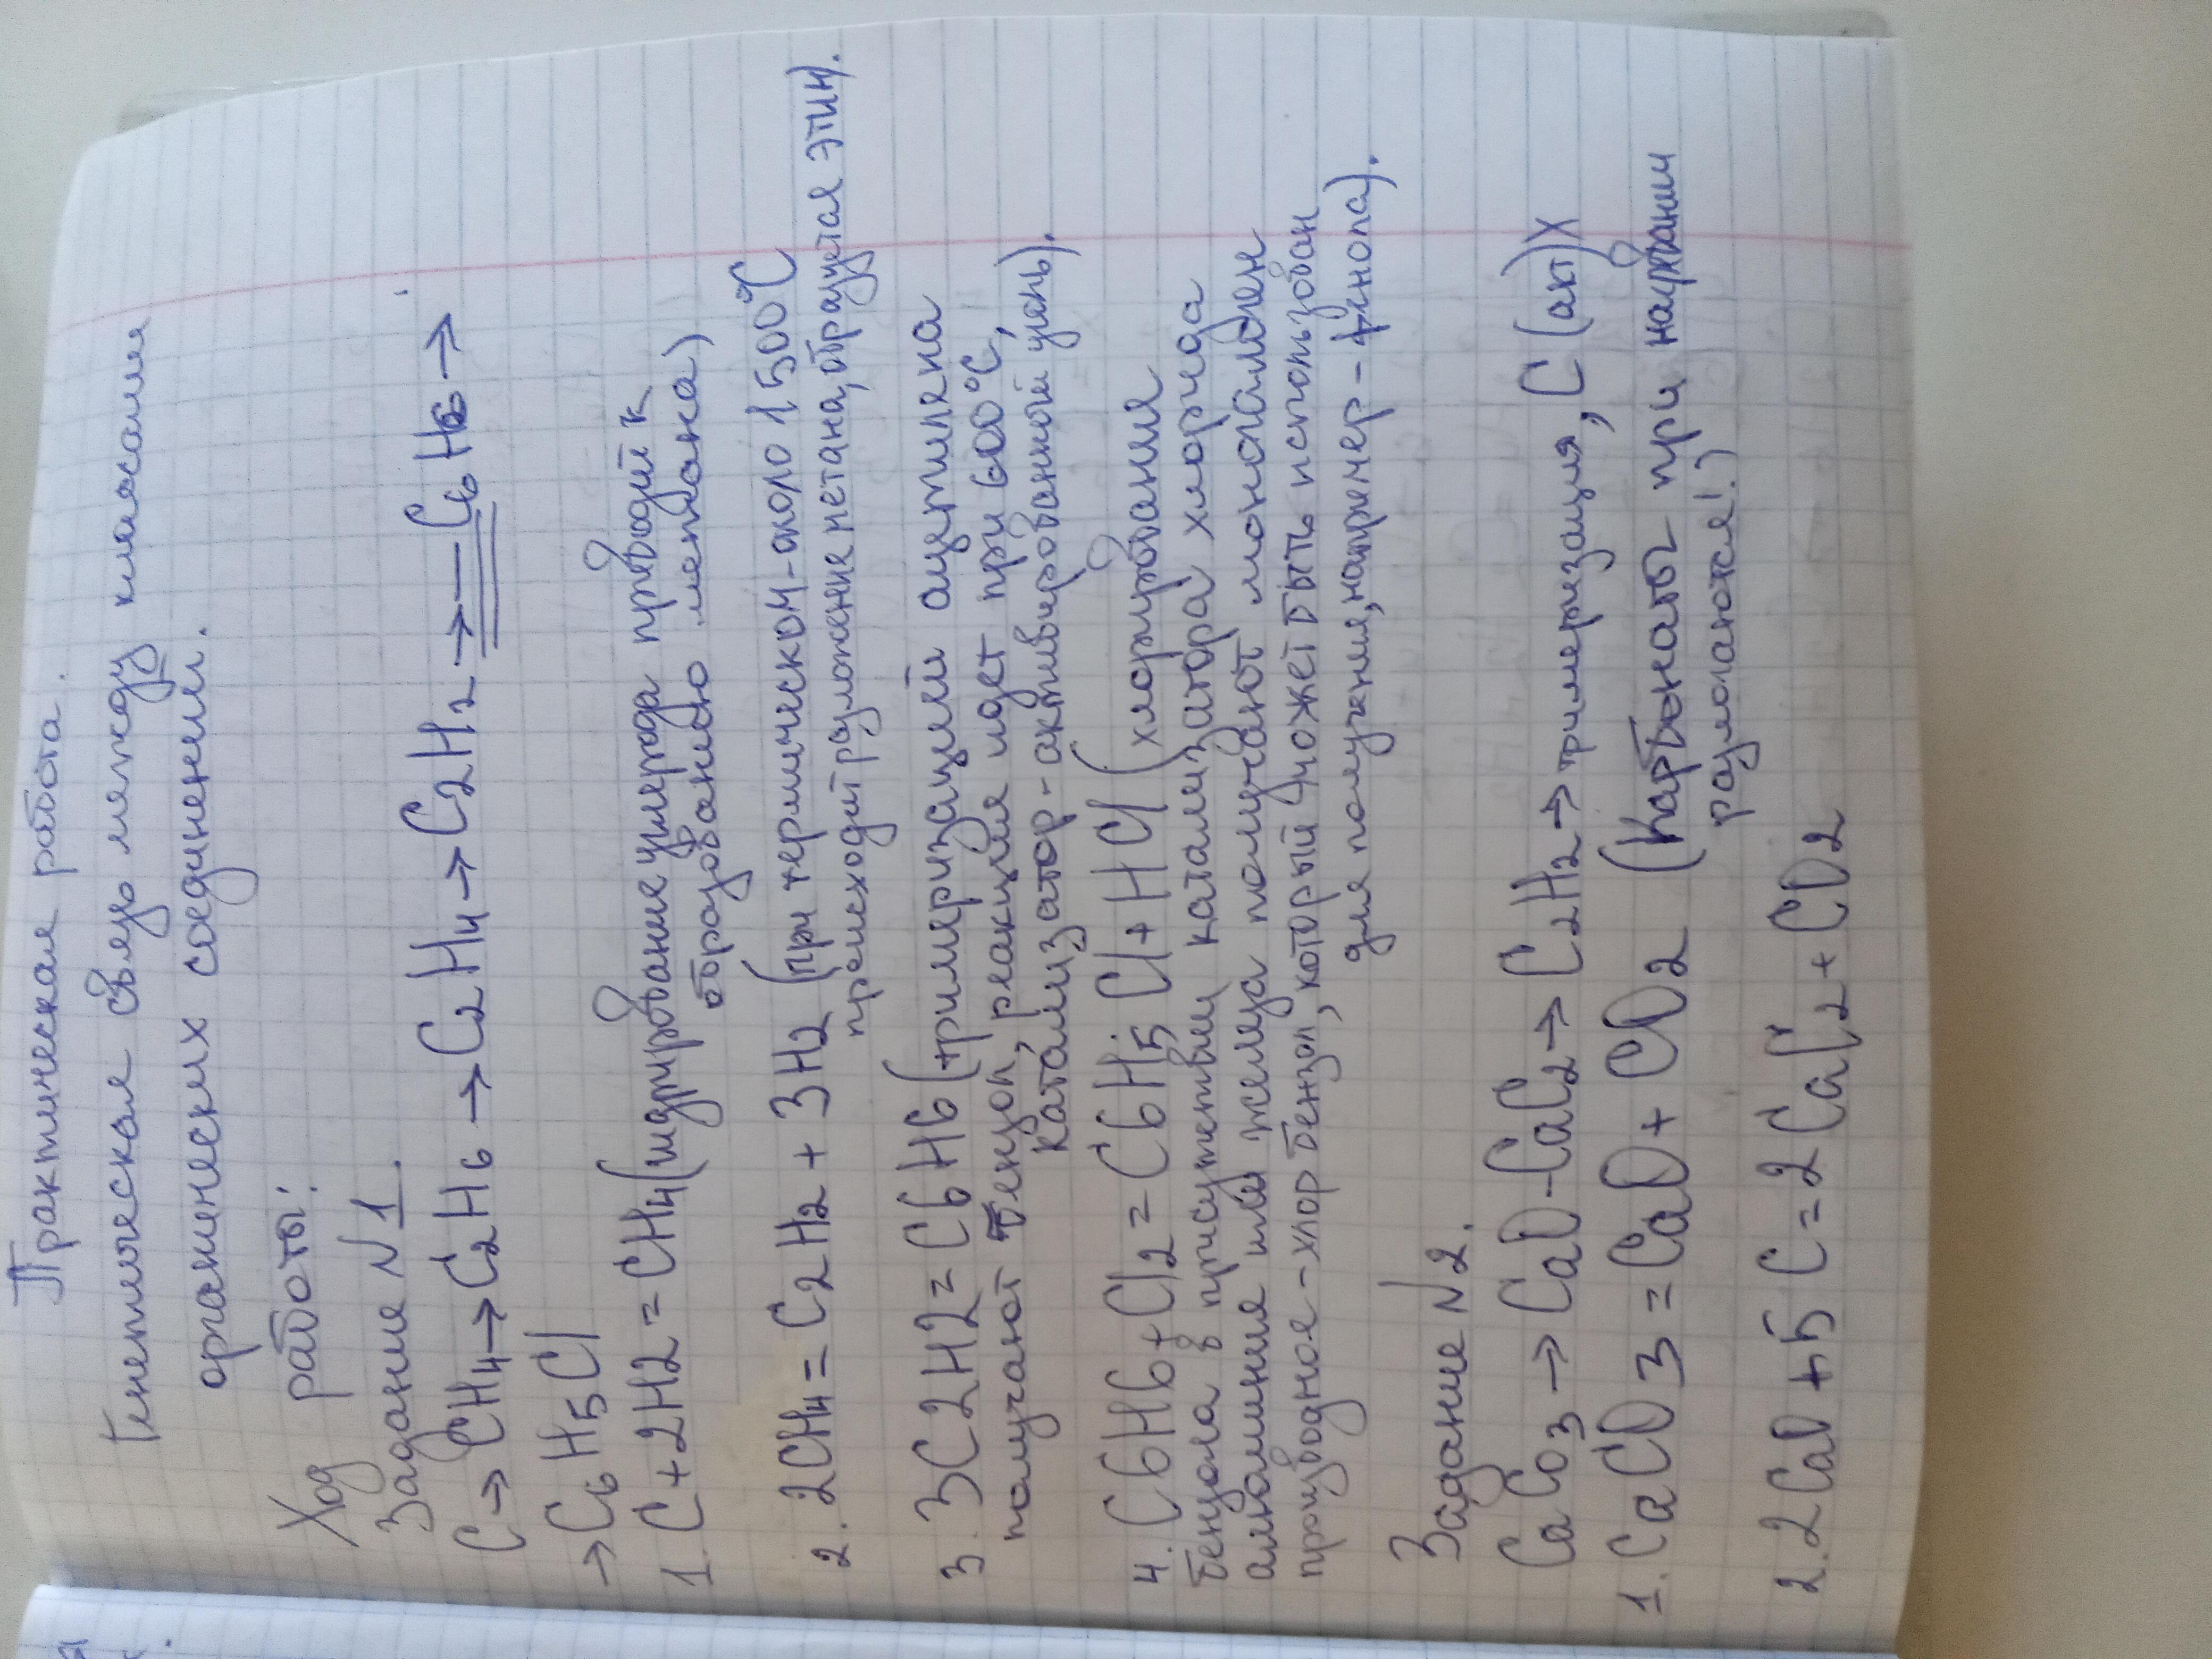 Практическая работа.
Генетическая связь между классами
органических соединений.
Ход
работы:
Задание №1.
C→CH4→C2H6→C2H4→C2H2→—C6H6→
→C6H5Cl
1. C+2H2=CH4(гидрирование углерода приводит к
образованию метана)
2. 2CH4=C2H2+3H2(при термическом-около 1500°C
происходит разложение метана, образуется этин).
3. 3C2H2=C6H6(тримеризацией ацетилена
получают бензол, реакция идет при 600°C,
катализатор-активированный уголь).
4. C6H6+Cl2=C6H5Cl+HCl(хлорирование
бензола в присутствии катализатора хлорида
алюминия или железа получают моногалоген
производное-хлорбензол, который может быть использован
для получения, например-фенола).
Задание №2.
CaCO3→CaO-CaC2→C2H2→тримеризация, C(акт)X
1. CaCO3=CaO+CO2 (Карбонаты при нагревании
разлогаются!)
2. 2CaO+5C=2CaC2+CO2